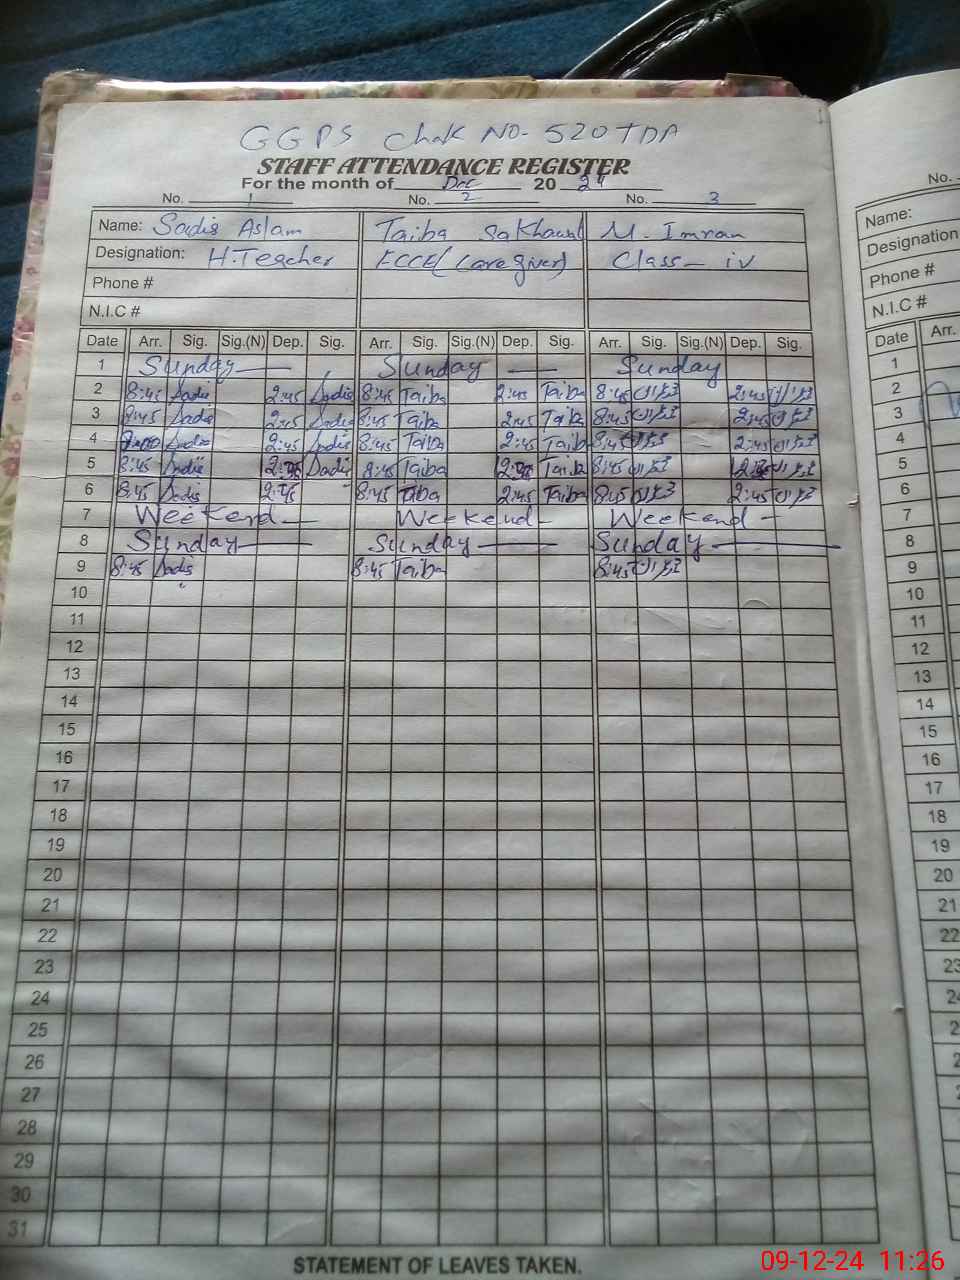 GGPS Chak NO- 520TDA
STAFF ATTENDANCE REGISTER
For the month of Dec 20 24
No. 1 No. 2 No. 3
Name: Sadia Aslam Taiba Sakhawat M. Imran
Designation: H.Teacher ECCE (Care giver) Class - iv
Phone #
N.I.C #
Date Arr. Sig. Sig.(N) Dep. Sig. Arr. Sig. Sig.(N) Dep. Sig. Arr. Sig. Sig.(N) Dep. Sig.
1 Sunday Sunday Sunday
2 8:45 Sadia 2:45 Sadia 8:45 Taiba 2:45 Taiba 8:45 2:45
3 8:45 Sadia 2:45 Sadia 8:45 Taiba 2:45 Taiba 8:45 2:45
4 Sadia 2:45 Sadia 8:45 Taiba 2:45 Taiba 8:45 2:45
5 8:45 Sadia Sadia 8:45 Taiba Taiba 8:45
6 8:45 Sadia 2:45 8:45 Taiba 2:45 Taiba 8:45 2:45
7 Weekend Weekend Weekend
8 Sunday Sunday Sunday
9 8:45 Sadia 8:45 Taiba 8:45
10
11
12
13
14
15
16
17
18
19
20
21
22
23
24
25
26
27
28
29
30
31
STATEMENT OF LEAVES TAKEN.
No.
Name:
Designation
Phone #
N.I.C #
Date Arr.
1
2
3
4
5
6
7
8
9
10
11
12
13
14
15
16
17
18
19
20
21
22
23
09-12-24 11:26